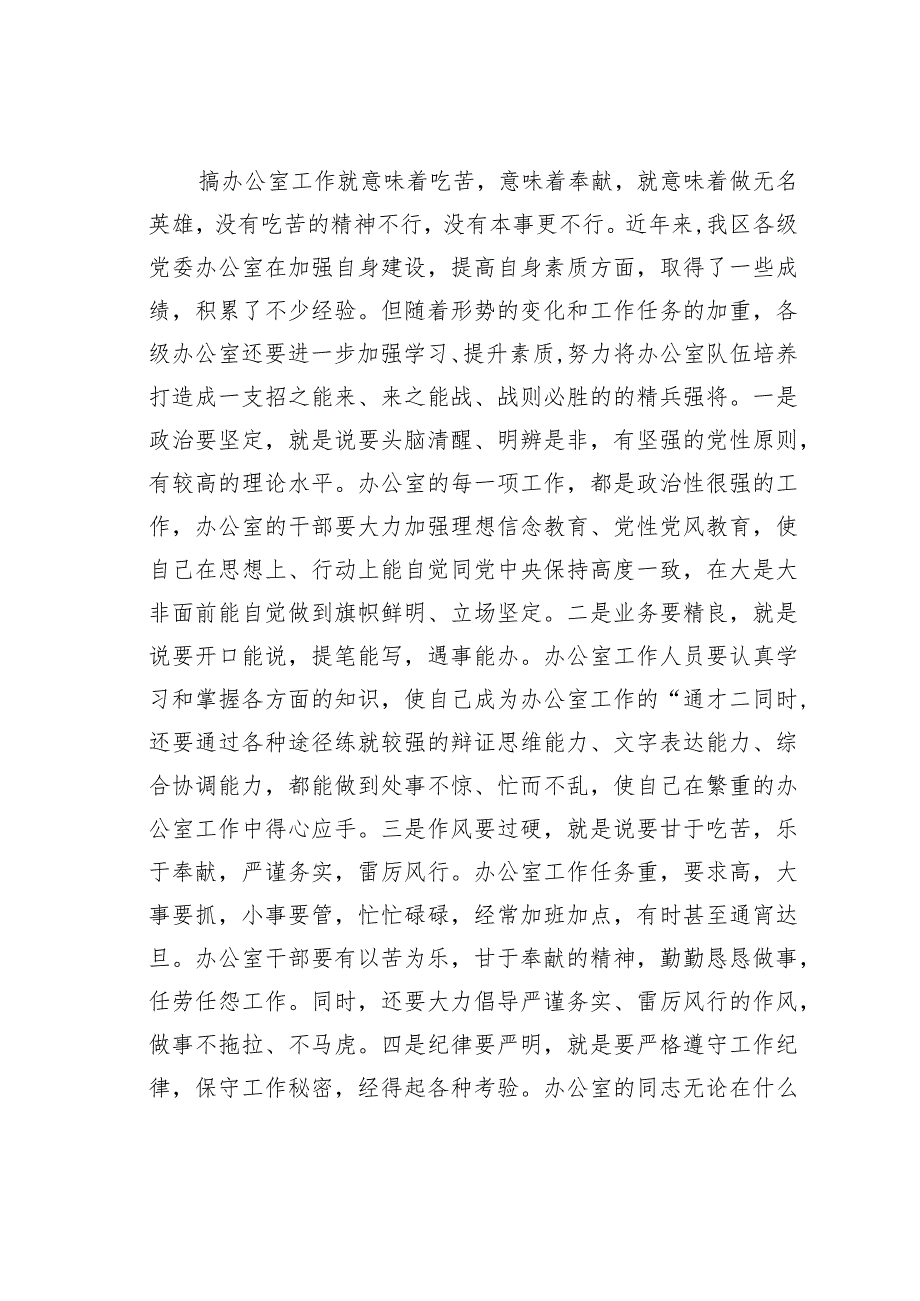 搞办公室工作就意味着吃苦，意味着奉献，就意味着做无名
英雄，没有吃苦的精神不行，没有本事更不行。近年来,我区各级
党委办公室在加强自身建设，提高自身素质方面，取得了一些成
绩，积累了不少经验。但随着形势的变化和工作任务的加重，各
级办公室还要进一步加强学习、提升素质,努力将办公室队伍培养
打造成一支招之能来、来之能战、战则必胜的的精兵强将。一是
政治要坚定，就是说要头脑清醒、明辨是非，有坚强的党性原则，
有较高的理论水平。办公室的每一项工作，都是政治性很强的工
作，办公室的干部要大力加强理想信念教育、党性党风教育，使
自己在思想上、行动上能自觉同党中央保持高度一致，在大是大
非面前能自觉做到旗帜鲜明、立场坚定。二是业务要精良，就是
说要开口能说，提笔能写，遇事能办。办公室工作人员要认真学
习和掌握各方面的知识，使自己成为办公室工作的“通才二同时，
还要通过各种途径练就较强的辩证思维能力、文字表达能力、综
合协调能力，都能做到处事不惊、忙而不乱，使自己在繁重的办
公室工作中得心应手。三是作风要过硬，就是说要甘于吃苦，乐
于奉献，严谨务实，雷厉风行。办公室工作任务重，要求高，大
事要抓，小事要管，忙忙碌碌，经常加班加点，有时甚至通宵达
旦。办公室干部要有以苦为乐，甘于奉献的精神，勤勤恳恳做事，
任劳任怨工作。同时，还要大力倡导严谨务实、雷厉风行的作风，
做事不拖拉、不马虎。四是纪律要严明，就是要严格遵守工作纪
律，保守工作秘密，经得起各种考验。办公室的同志无论在什么